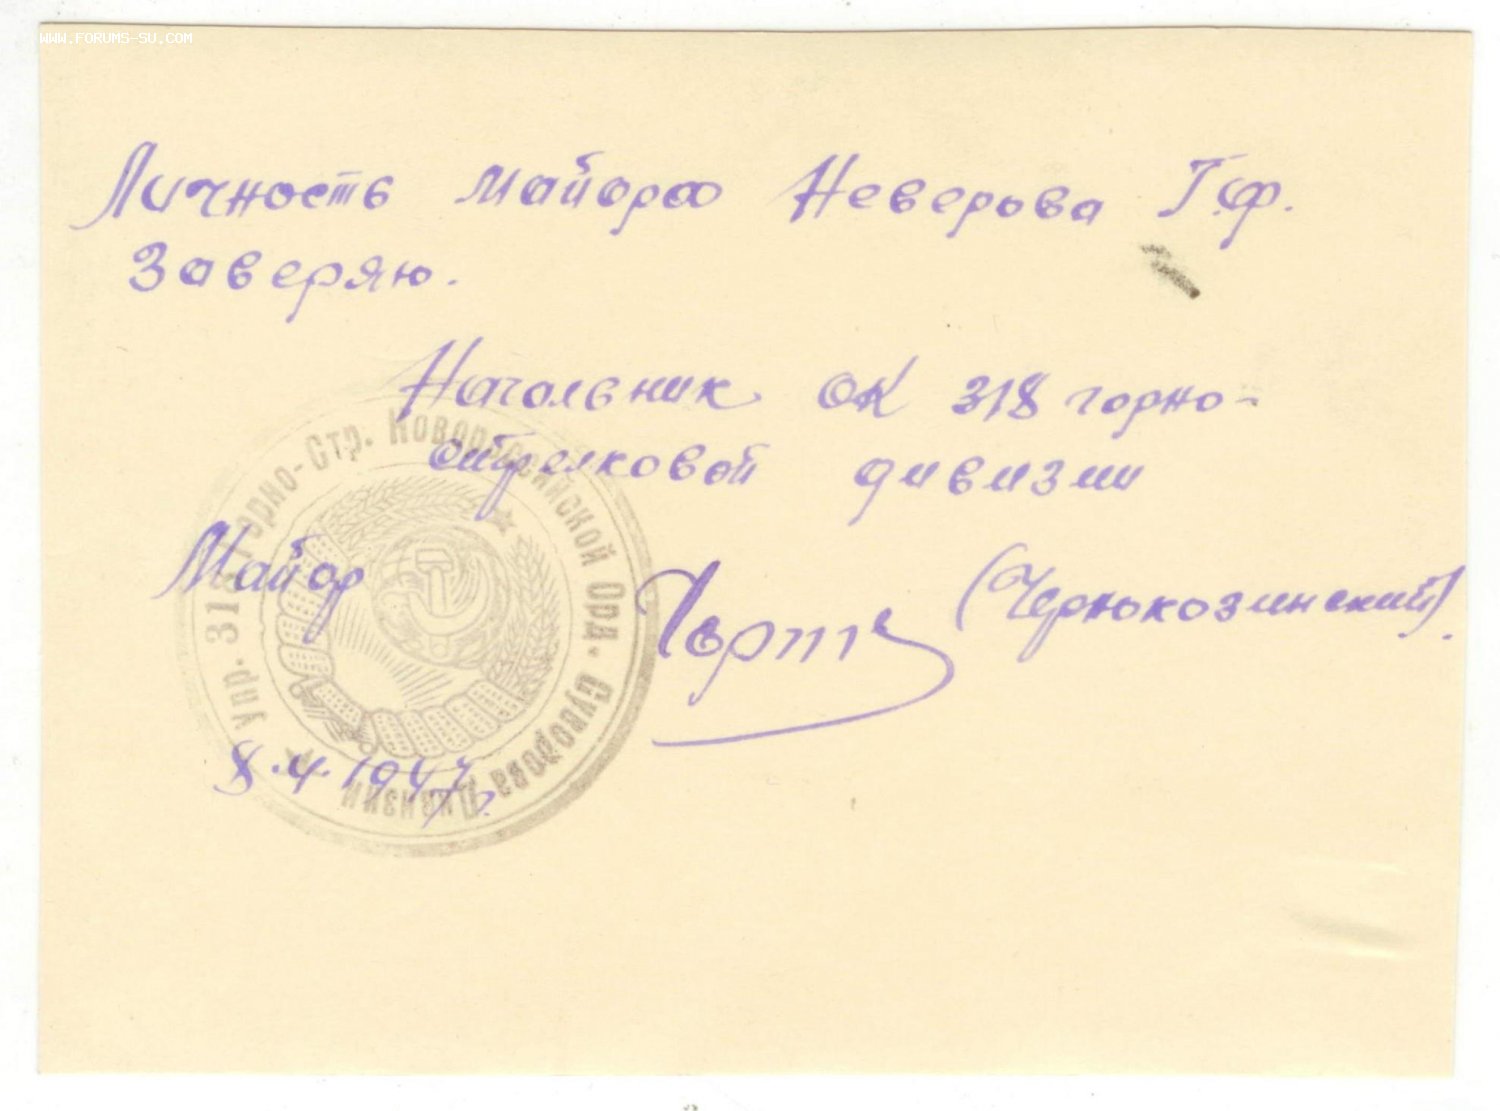 WWW.FORUMS-SU.COM
Личность майора Неверова Г.Ф.
Заверяю.
Начальник ОК 318 горно-
стрелковой дивизии
Майор (Чернокозинский).
8.4.1947г.
Упр. 318 Горно-Стр. Новороссийской Орд. Суворова Дивизии